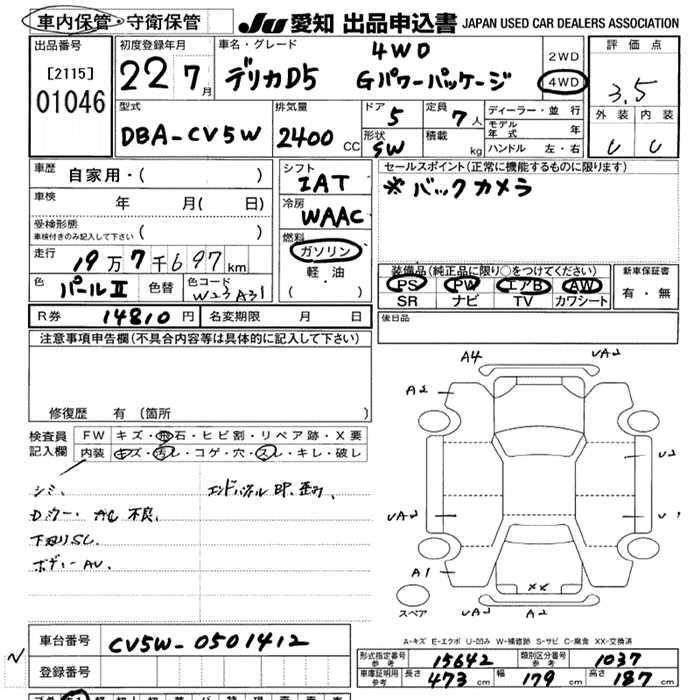 車内保管・守衛保管
JU 愛知 出品申込書 JAPAN USED CAR DEALERS ASSOCIATION
出品番号
[2115]
01046
初度登録年月
22 7月
車名・グレード
4WD
デリカD5 Gパワーパッケージ
2WD
4WD
評価点
3.5
外装 内装
U U
型式
DBA-CV5W
排気量
2400 CC
ドア 5
形状 SW
定員 7人
積載 kg
ディーラー・並行
モデル年式 年
ハンドル 左・右
車歴 自家用・( )
車検 年 月( 日)
受検形態
車検付きのみ記入して下さい ( )
走行 19万7千697km
色 パールII 色替 色コード W23 A31
シフト
IAT
冷房
WAAC
燃料
ガソリン
軽・油
( ・ )
セールスポイント(正常に機能するものに限ります)
※バックカメラ
装備品(純正品に限り○をつけてください)
PS PW エアB AW
SR ナビ TV カワシート
新車保証書
有・無
R券 14810円 名変期限 月 日
後日品
注意事項申告欄(不具合内容等は具体的に記入して下さい)
修復歴 有(箇所 )
検査員記入欄
FW キズ・飛石・ヒビ割・リペア跡・X要
内装 キズ・汚レ・コゲ・穴・スレ・キレ・破レ
シミ、 エンドパネル BP、歪み
Dミラー AC 不良、
下廻りSC.
ボディーAU、
A4 UA2
A2 U2
UA2 U1
A1
XX
UA2 A2
スペア
A-キズ E-エクボ U-凹み W-補修跡 S-サビ C-腐食 XX-交換済
車台番号 CV5W-0501412
登録番号
形式指定番号 参考 15642 類別区分番号 参考 1037
車庫証明用 参考 長さ 473cm 幅 179cm 高さ 187cm